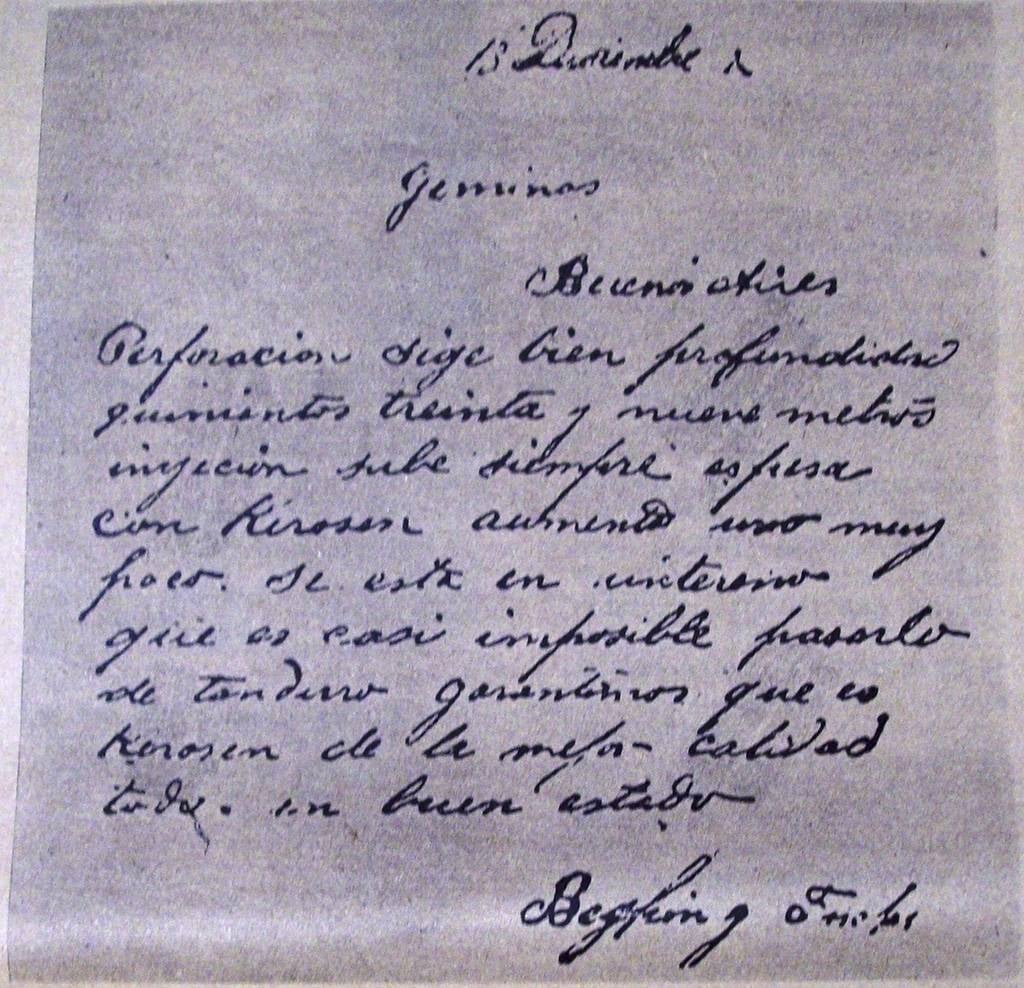 13 Diciembre
Geminas
Buenos Aires
Perforacion sige bien profundidad
quinientos treinta y nueve metros
injecion sube siempre espesa
con Kerosen aumento uno muy
poco. Se está en un tereno
que es casi imposible pasarlo
de tan duro garantimos que es
Kerosen de la mejor calidad
todo. en buen estado
Beghin y Fuchs